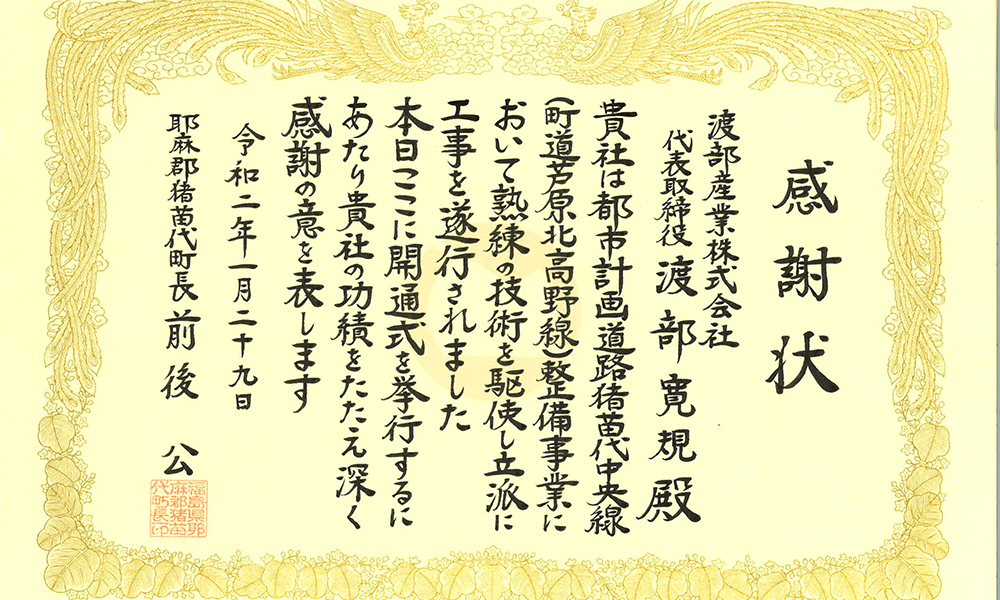 感謝状
渡部産業株式会社
代表取締役 渡部寛規殿
貴社は都市計画道路猪苗代中央線
(町道芦原北高野線)整備事業に
おいて熟練の技術を駆使し立派に
工事を遂行されました
本日ここに開通式を挙行するに
あたり貴社の功績をたたえ深く
感謝の意を表します
令和二年一月二十九日
耶麻郡猪苗代町長 前後 公
福島県耶
麻郡猪苗
代町長印